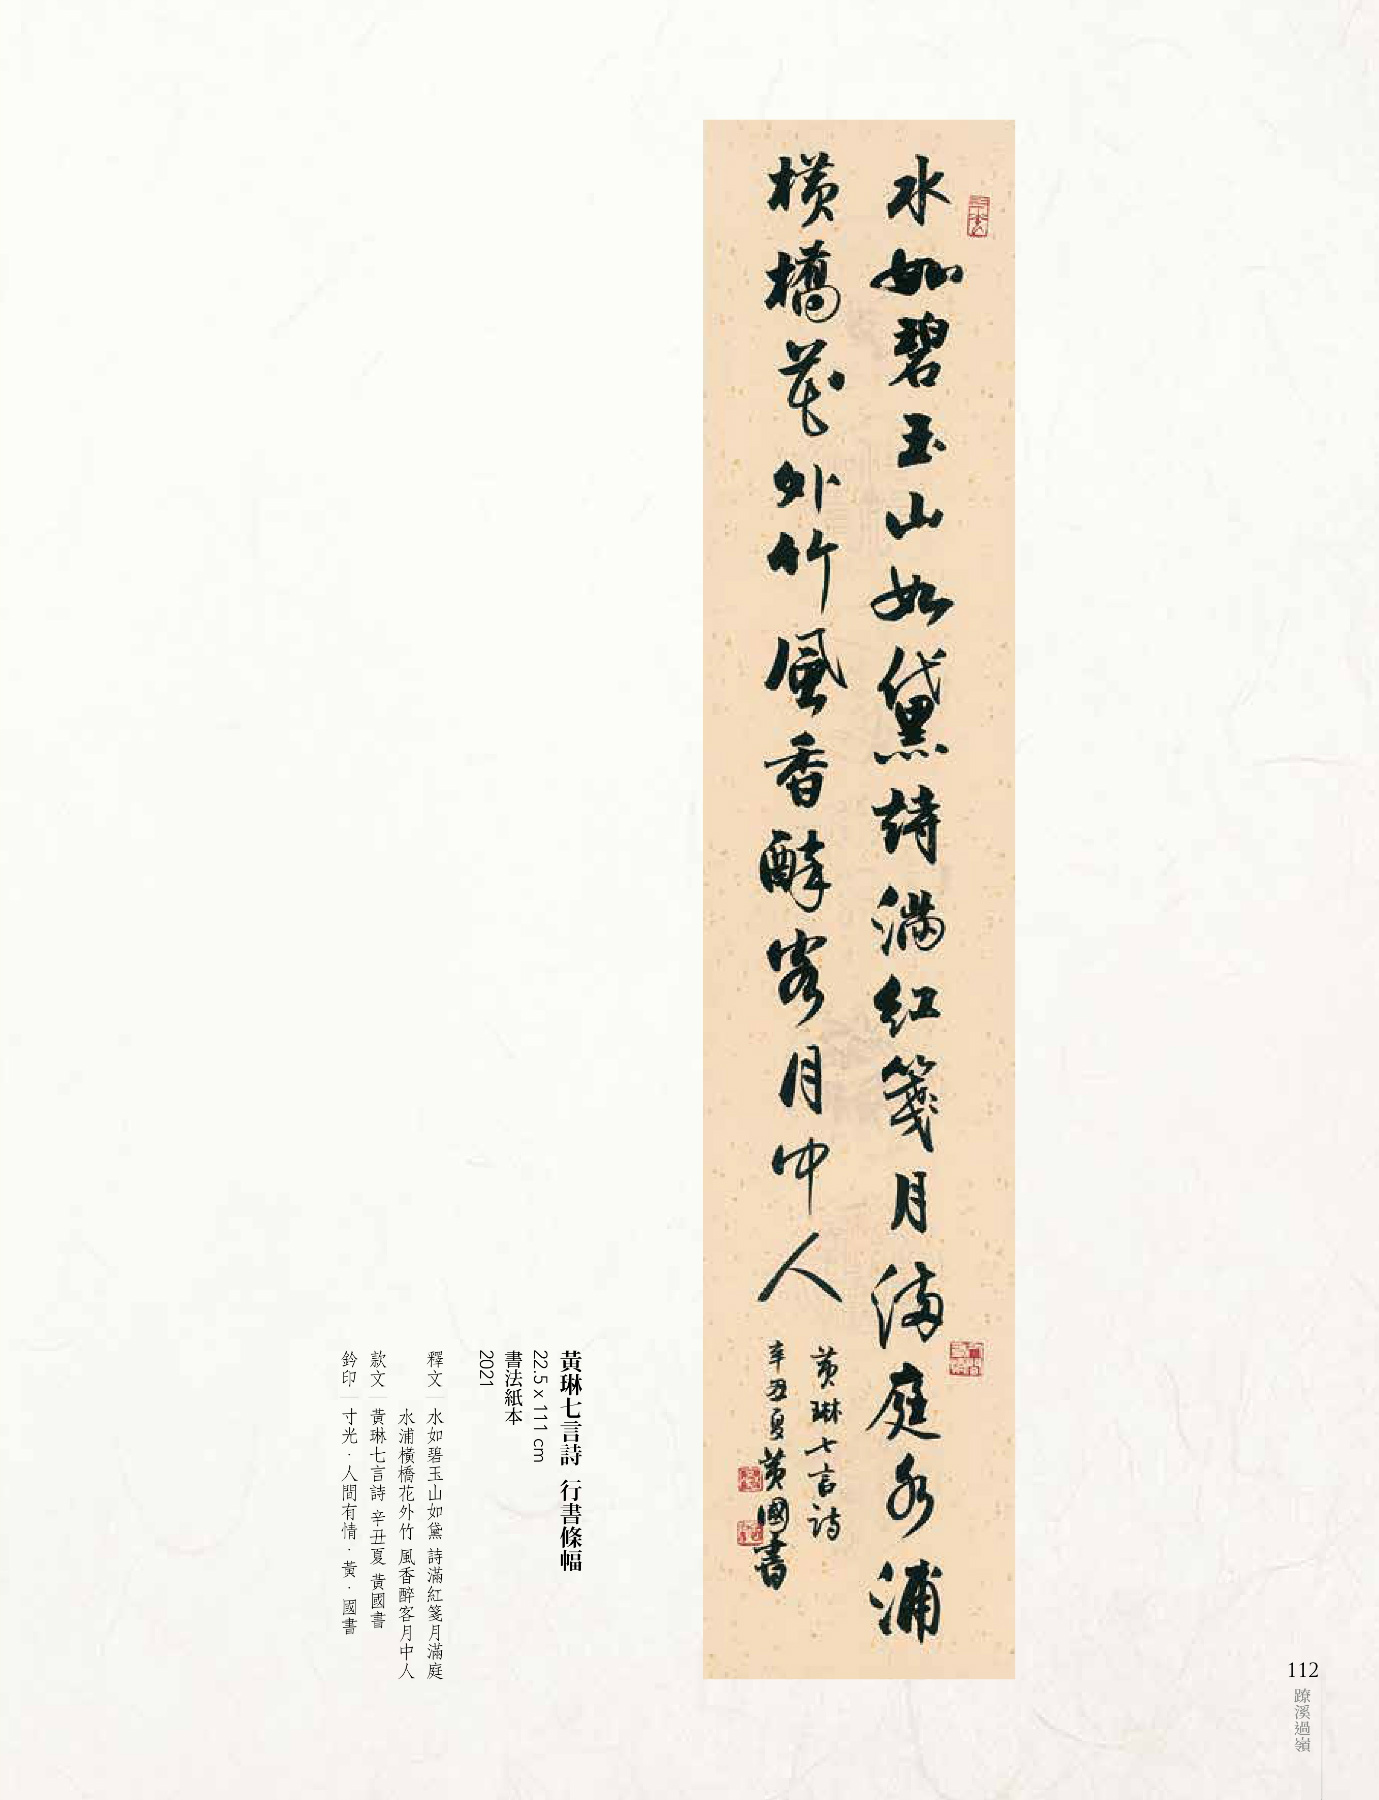 水如碧玉山如黛詩滿紅箋月滿庭水浦
橫橋花外竹風香醉客月中人
黃琳七言詩
辛丑夏黃國書
黃琳七言詩 行書條幅
22.5 x 111 cm
書法紙本
2021
釋文｜水如碧玉山如黛 詩滿紅箋月滿庭
水浦橫橋花外竹 風香醉客月中人
款文｜黃琳七言詩 辛丑夏 黃國書
鈐印｜寸光．人間有情．黃．國書
112
蹽溪過嶺